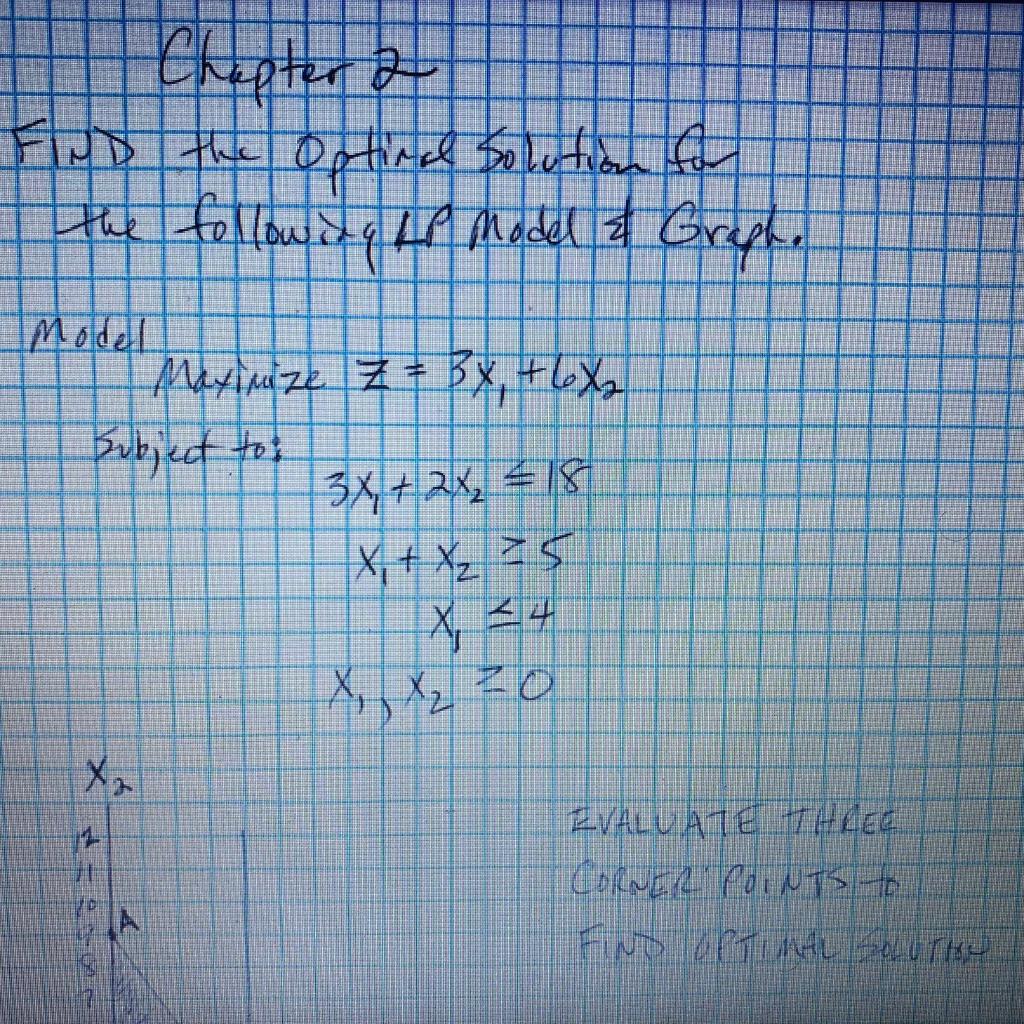 Chapter 2
FIND the Optimal Solution for
the following LP Model & Graph.
Model
Maximize Z = 3X₁ + 6X₂
Subject to:
3X₁ + 2X₂ ≤ 18
X₁ + X₂ ≥ 5
X₁ ≤ 4
X₁, X₂ ≥ 0
X₂
12
11
10
9
A
8
7
EVALUATE THREE
CORNER POINTS to
FIND OPTIMAL SOLUTION